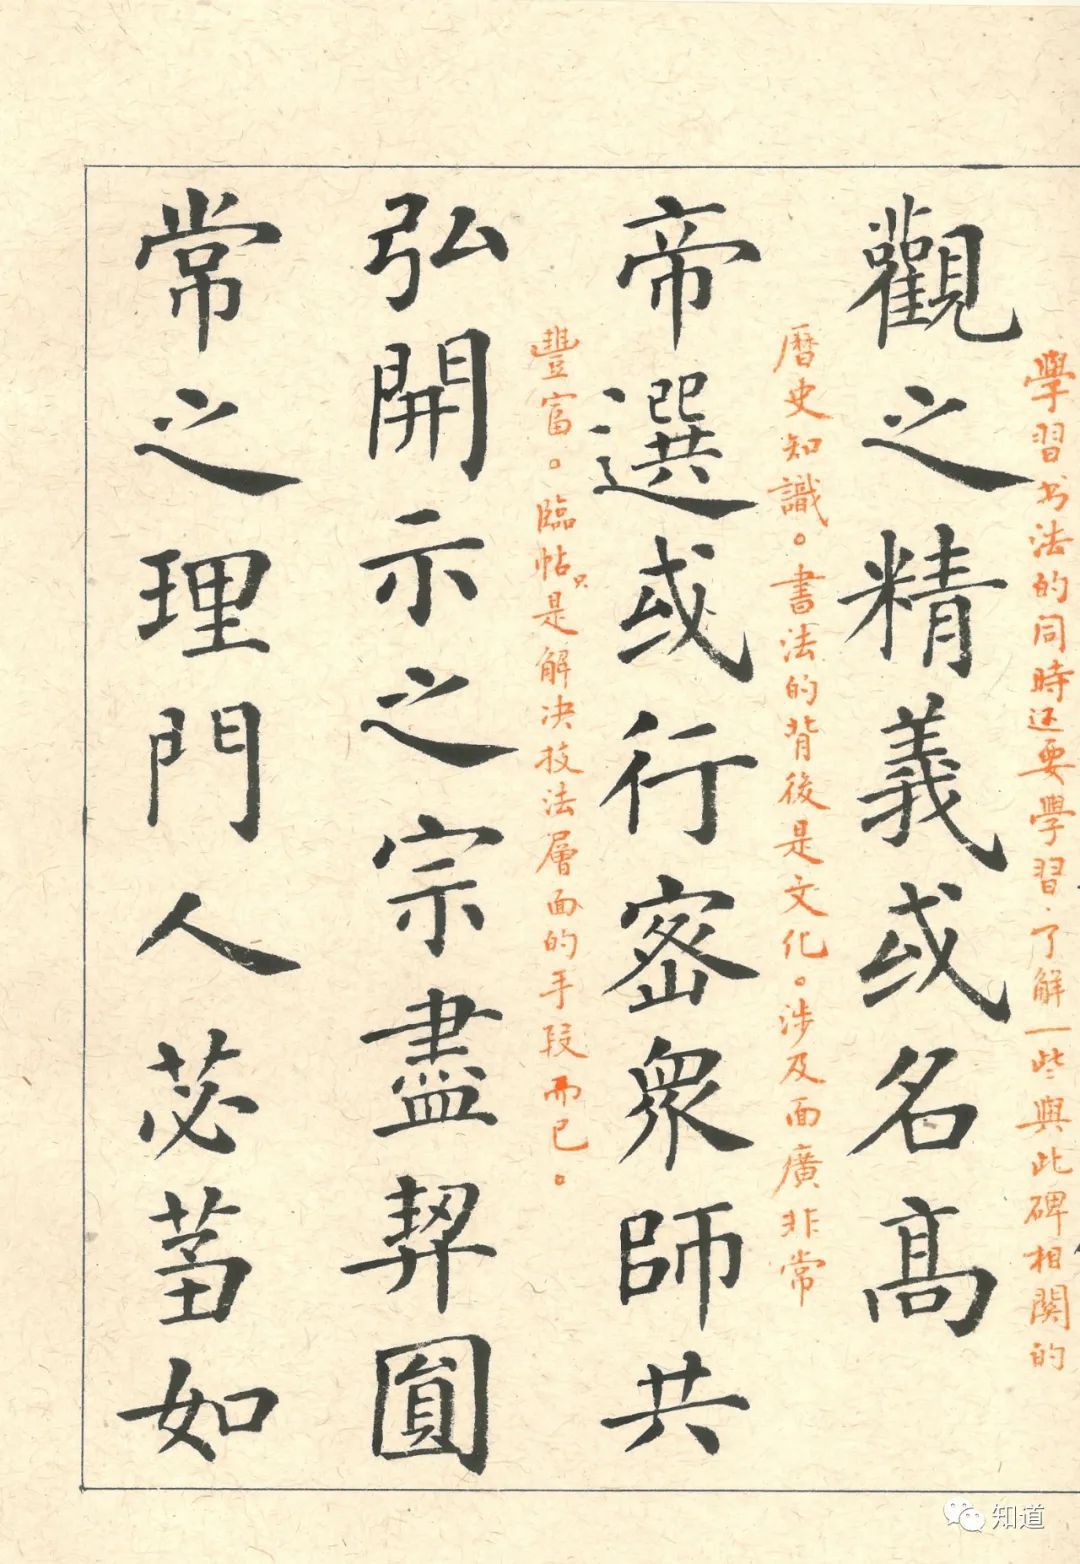 學習书法的同時还要學習、了解一些與此碑相関的
觀之精義或名高
曆史知識。書法的背後是文化。涉及面廣非常
帝選或行密衆師共
豐富。臨帖只是解决技法層面的手段而已。
弘開示之宗盡契圓
常之理門人苾蒭如
知道